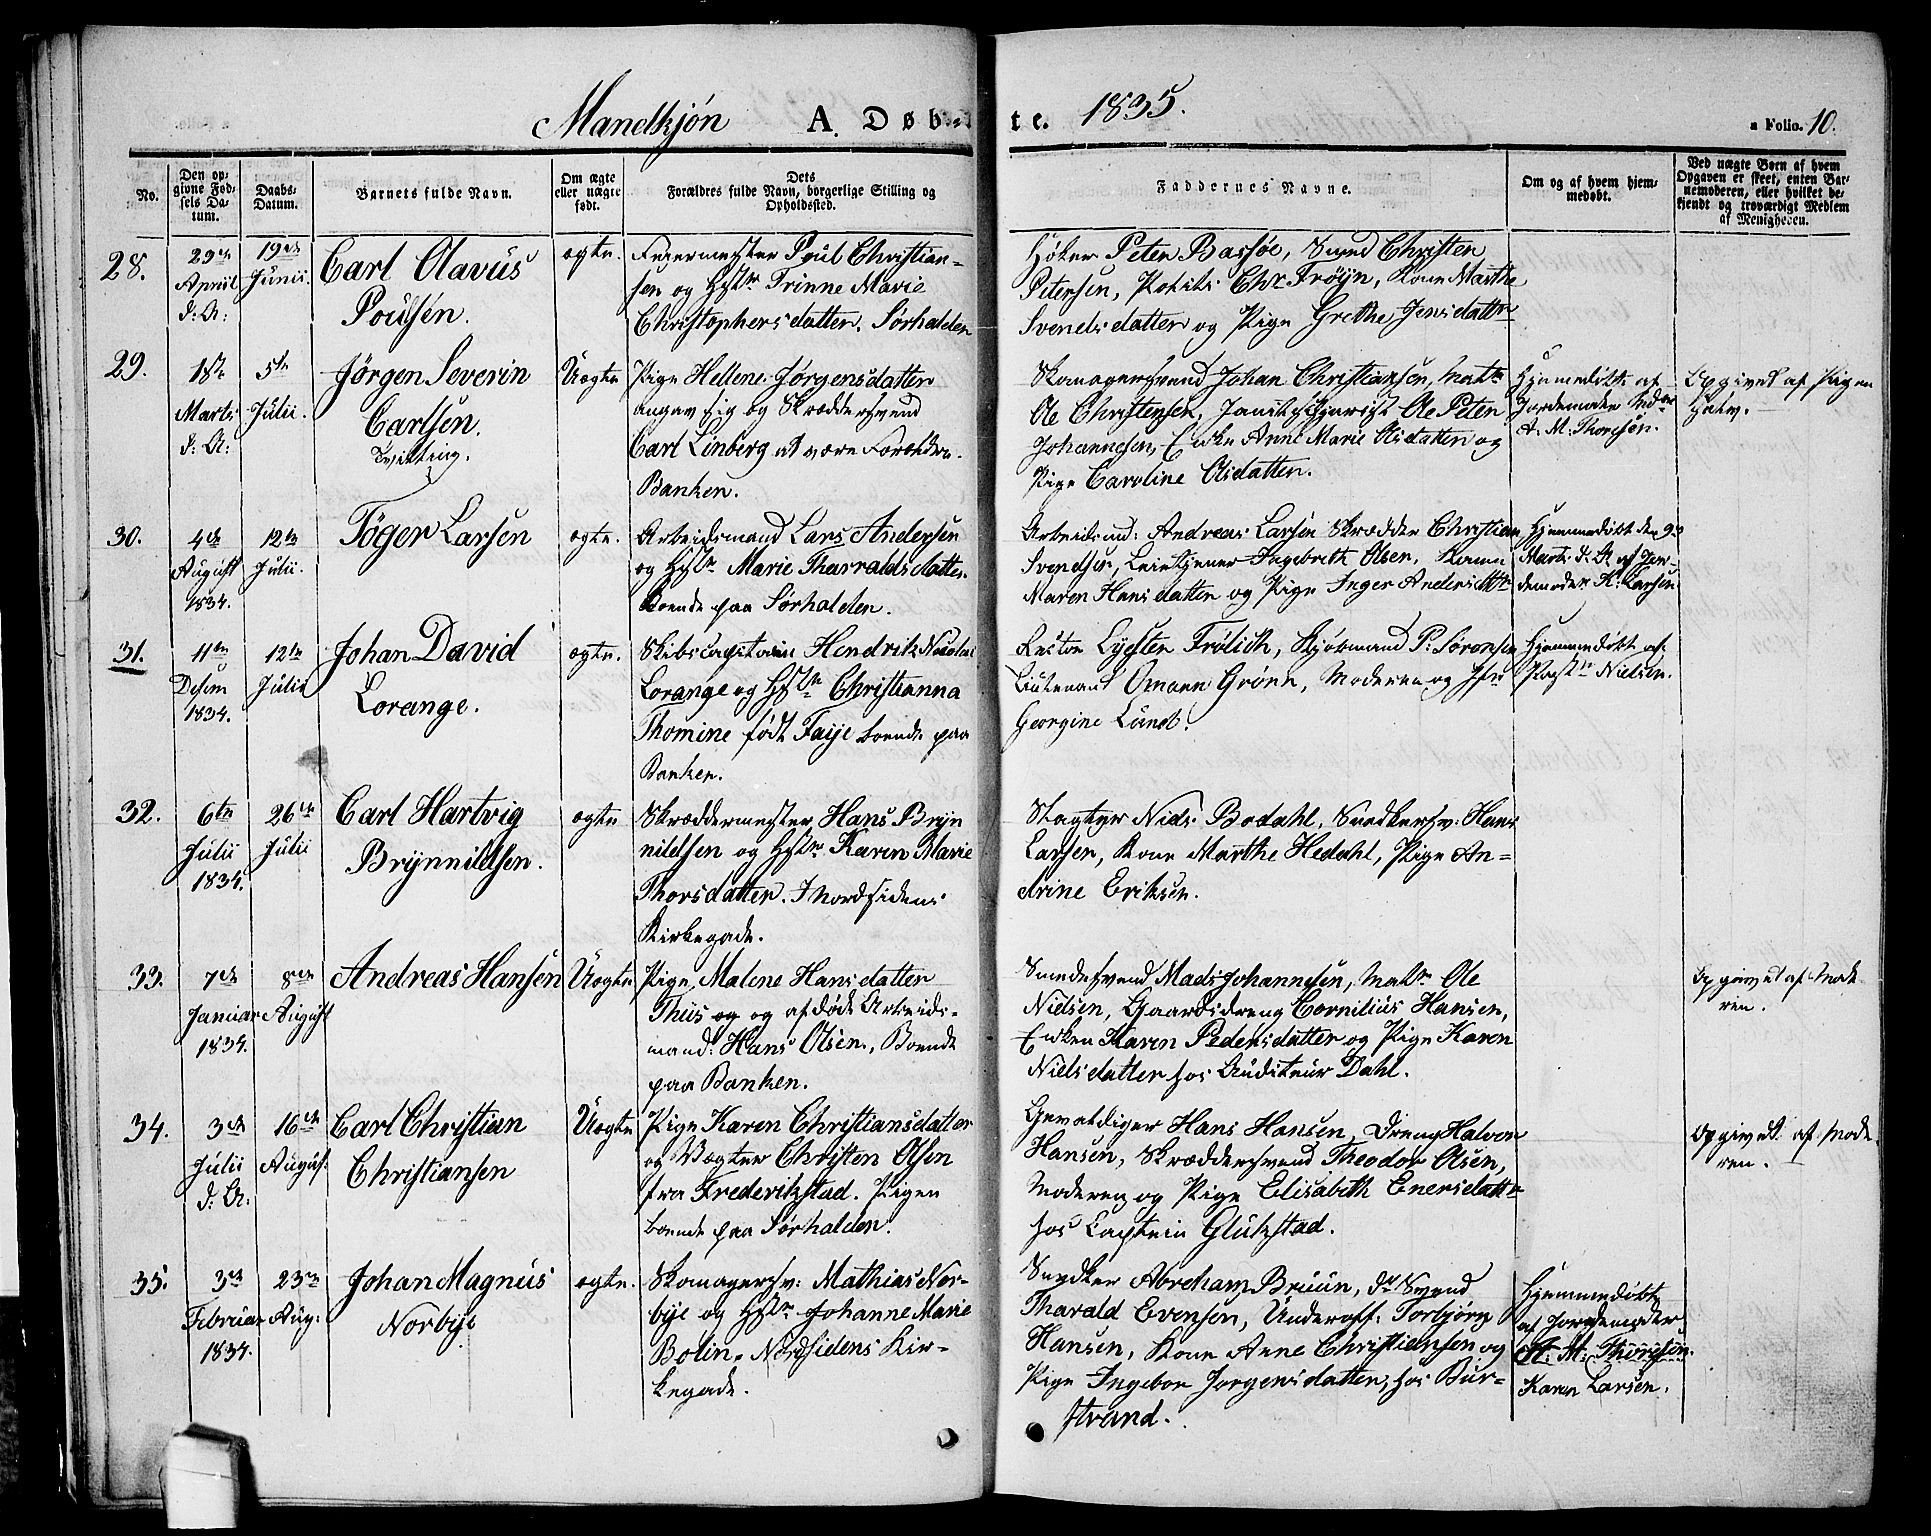 Mandkjøn A. Døb-
te. 1835.
a Folio. 10.
No.
Den op-
givne Fød-
sels Da-
tum.
Daabs-
Datum.
Barnets fulde Navn.
Om ægte
eller uægte
født.
Dets
Forældres fulde Navn, borgerlige Stilling og
Opholdssted.
Faddernes Navne.
Om og af hvem hjem-
medøbt.
Ved uægte Børn af hvem
Opgaven er skeet, enten Bar-
nemoderen, eller hvilket be-
kjendt og troværdigt Medlem
af Menigheden.
28.
23de
April
d: A:
19de
Junii.
Carl Olavus
Poulsen.
ægte.
Feiermester Poul Christian-
sen og Hstr Trinne Marie
Christophersdatter. Sørhalden
Høker Peter Bassøe, Svend Christen
Petersen, Chr Frøyn, Kone Marthe
Svendsdatter og Pige Grethe Jensdattr
29.
18de
Marts
d: A:
5te
Julii.
Jørgen Severin
Carlsen.
Tvilling.
Uægte
Pige Hellene Jørgensdatter
angav sig og Skræddersvend
Carl Linberg at være Forældre.
Banken.
Skomagersvend Johan Christiansen, Matr
Ole Christensen, Ole Peter
Johannesen, Enke Anne Marie Olsdatter og
Pige Caroline Olsdatter.
Hjemmedøbt af
Jordemoder Mdme
A. M. Thoresen.
Opgivet af Pigen
selv.
30.
4de
August
1834.
12te
Julii.
Töger Larsen
ægte.
Arbeidsmand Lars Andersen
og Hstr Marie Tharraldsdatter.
Boende paa Sørhalden.
Arbeidsmd: Andreas Larsen Skrædder Christian
Svendsen, Leietjener Ingebreth Olsen, Konen
Maren Hansdatter og Pige Inger Andersdttr
Hjemmedøbt den 9de
Marts d. A. af Jor-
demoder K: Larsen
31.
11te
Desem
1834.
12te
Julii
Johan David
Lorange.
ægte.
Skibscapitain Hendrik Nicolai
Lorange og Hstr Christianna
Thomine født Faije boende paa
Banken.
Lyster Frölich, Kjøbmand P: Sørensen
Liutenant Omann Grönn, Moderen og Jfr
Georgine Lund.
Hjemmedøbt af
Pastr Nielsen.
32.
6te
Julii
1834.
26de
Julii
Carl Hartvig
Brynnildsen.
ægte
Skræddermester Hans Bryn
nildsen og Hstr Karen Marie
Thorsdatter. I Nordsidens
Kirkegade.
Slagter Niels Bodahl, Snedkersv: Hans
Larsen, Kone Marthe Hedahl, Pige An-
drine Eriksen.
33.
7de
Januar
1834.
8de
August
Andreas Hansen
Uægte
Pige Malene Hansdatter
Thiis og og afdøde Arbeids-
mand: Hans Olsen., Boende
paa Banken.
Smedesvend Mads Johannesen, Matr Ole
Nielsen, Gaardsdreng Cornilius Hansen,
Enken Karen Pedersdatter og Pige Karen
Nielsdatter hos Auditeur Dahl.
Opgivet af Mode-
ren.
34.
3de
Julii
d: A:
16de
August.
Carl Christian
Christiansen
Uægte
Pige Karen Christiansdatter
og Vægter Christen Olsen
fra Frederikstad. Pigen
boende paa Sørhalden.
Gevaldiger Hans Hansen, Dreng Halvor
Hansen, Skræddersvend Theodor Olsen,
Moderen og Pige Elisabeth Enersdattr
hos Captein Glükstad.
Opgivet af Mode-
ren.
35.
3de
Februar
1834.
23de
Aug:
Johan Magnus
Norbye
ægte.
Skomagersv: Mathias Nor-
bye og Hstr Johanne Marie
Bolin. Nordsidens Kir-
kegade.
Snedker Abraham Bruun, do Svend
Tharald Evensen, Underoff: Torbjørn
Hansen, Kone Anne Christiansen og
Pige Ingebor Jorgensdatter, hos Bur-
strand.
Hjemmedøbt
af Jordemoder
A: M: Thoresen.
Karen Larsen.